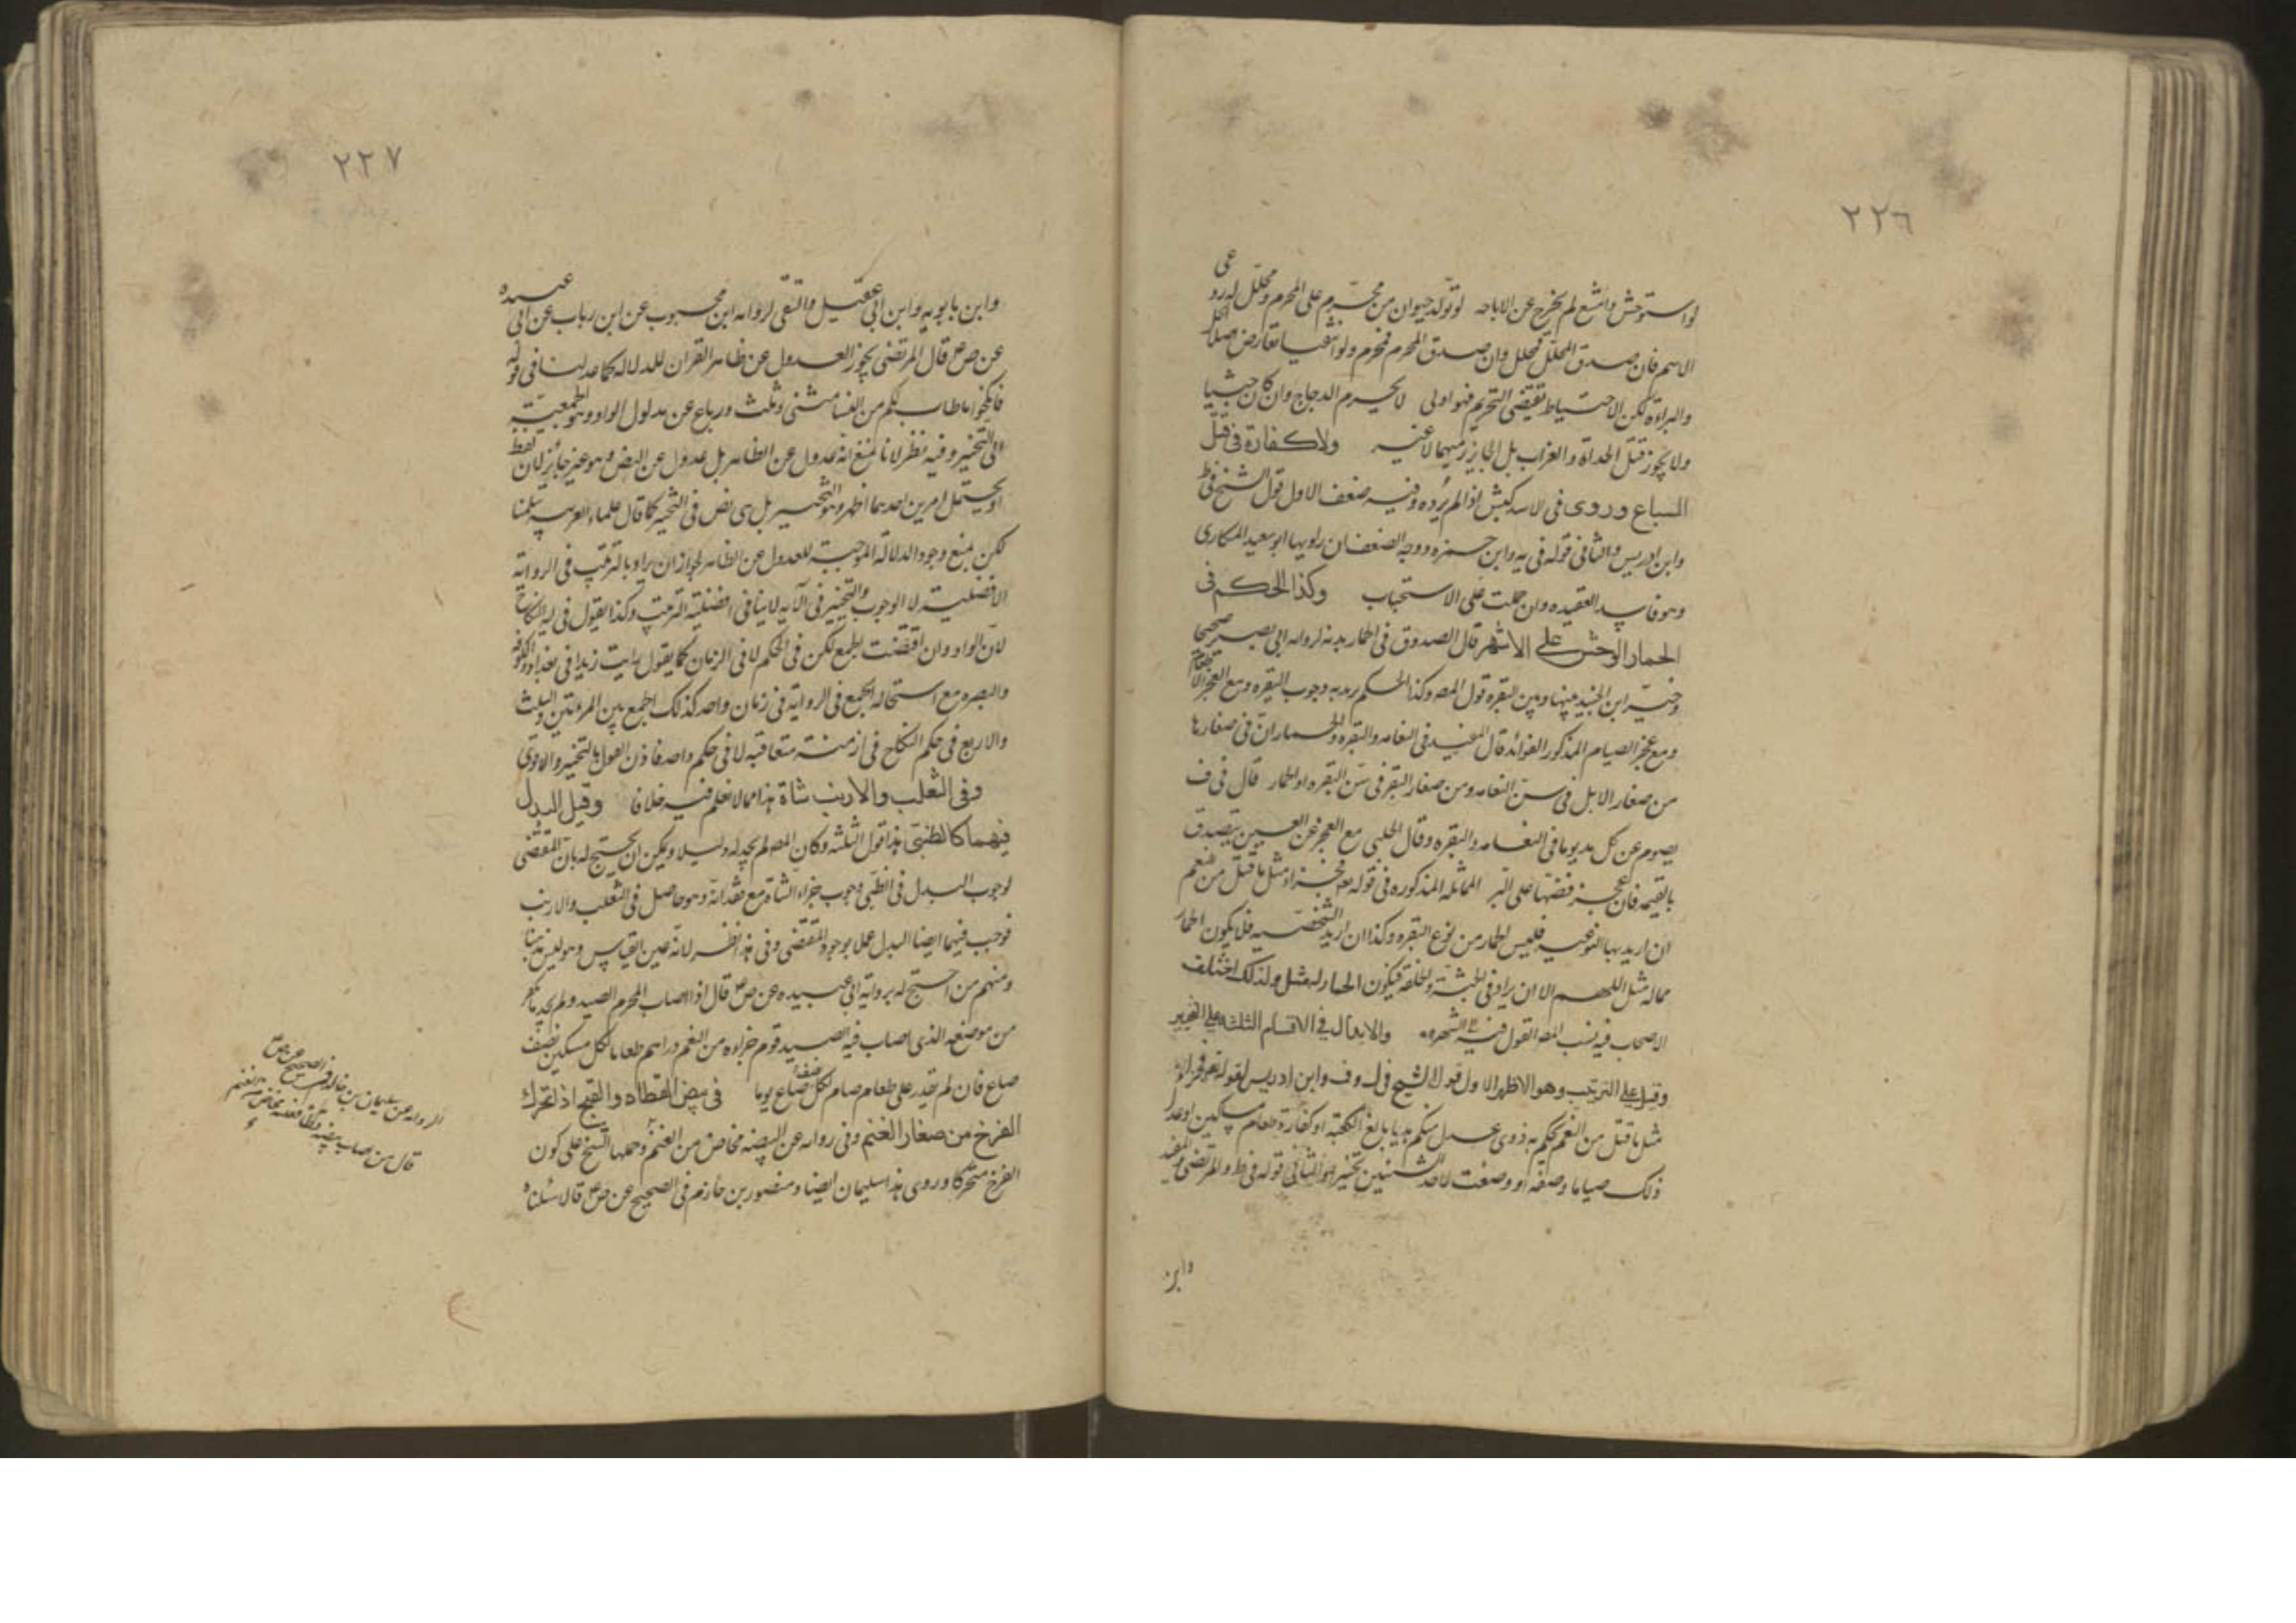 ٢٢٦
لو استوحش وامتنع لم يخرج عن الاباحه لو تولد حيوان من محرم على المحرم ومحلل له روعى
الاسم فان صدق المحلل فحلل وان صدق المحرم فمحرم ولو انتفيا تعارض اصلا الحل
والبراءة لكن الاحتياط تقيضى التحريم فهو اولى لا يحرم الدجاج وان كان حبشيا
ولا يجوز قتل الحداة والغراب بل الجايز رميهما لا عنه ولا كفارة فى قتل
السباع وروى فى الاسد كبش اذا لم يرده وفيه ضعف الاول قول الشيخ فى ط
وابن ادريس والثانى قوله فى يه وابن حمزه ووجه الضعف ان راويها ابو سعيد المكارى
وهو فاسد العقيده وان حملت على الاستحباب وكذا الحكم فى
الحمار الوحش على الاشهر قال الصدوق فى الحمار بدنه لروايه ابى بصير صحيحا
وخير ابن الجنيد بينها وبين البقره قول المصه وكذا الحكم يريد به وجوب البقره ومع العجز الاطعام
ومع عجز الصيام المذكور الفوائد قال المفيد فى النعامه والبقره والحمار ان فى صغارها
من صغار الابل فى سن النعامه ومن صغار البقر فى سن البقره او الحمار قال فى ف
يصوم عن كل مد يوما فى النعامه والبقره وقال الحلبى مع العجز عن العين يتصدق
بالقيمه فان عجز فضها على البر المماثله المذكوره فى قوله تعم فجزاء مثل ما قتل من النعم
ان اريد بها النوعيه فليس الحمار من نوع البقره وكذا ان اريد الشخصيه فلا يكون الحمار
مماله مثل اللهم الا ان يراد فى الجثة والخلقه فيكون الحمار له مثل ولذلك اختلف
الاصحاب فيه فنسب المصه القول فيه الى الشهره والابدال فى الاقسام الثلثه على التخيير
وقيل على الترتيب وهو الاظهر الاول قول الشيخ فى ل وف وابن ادريس لقوله تعم فجزاء
مثل ما قتل من النعم يحكم به ذوى عدل منكم هديا بالغ الكعبة او كفارة طعام مسكين او عدل
ذلك صياما وصفه او وضعت لاحد الشيئين تخييرا والثانى قوله فى ط والمرتضى والمفيد
وابن
٢٢٧
وابن بابويه وابن ابى عقيل والتقى لروايه ابن محبوب عن ابن رياب عن ابى عبيده
عن ص ع قال المرتضى يجوز العدول عن ظاهر القران للدلاله كما عدلنا فى قوله
فانكحوا ما طاب لكم من النسا مثنى وثلث ورباع عن مدلول الواو وهو الجمعية
الى التخيير وفيه نظر لانا نمنع انه عدول عن الظاهر بل عدول عن النص وهو غير جايز لان لفظ
او يحتمل امرين احدهما اظهر وهو التخيير بل هى نص فى التخيير كما قال علماء العربيه سلمنا
لكن نمنع وجود الدلالة الموجبة للعدول عن الظاهر لجواز ان يراد بالترتيب فى الرواية
الافضلية لا الوجوب والتخيير فى الآيه لا ينافى افضلية الترتيب وكذا يقول فى آية النكاح
لان الواو وان اقتضت الجمع لكن فى الحكم لا فى الزمان كما يقول رايت زيدا فى بغداد والكوفه
والبصره مع استحاله الجمع فى الرواية فى زمان واحد كذلك الجمع بين المرءتين والثلث
والاربع فى حكم النكاح فى ازمنة متعاقبه لا فى حكم واحد فاذن العول بالتخيير والاقوى
وفى الثعلب والارنب شاة هذا مما لا نعلم فيه خلافا وقيل البدل
فيهما كالظبى هذا قول الثلثه وكان المصه لم يجد له دليلا ويمكن ان يحتج له بان المقتضى
لوجوب البدل فى الظبى وجوب جزاء الشاة مع فقدانه وهو حاصل فى الثعلب والارنب
فوجب فيهما ايضا البدل عملا بوجود المقتضى وفى هذا نظر لانه عين القياس وهو ليس مذهبنا
ومنهم من احتج له برواية ابى عبيده عن ص ع قال اذا اصاب المحرم الصيد ولم يجد ما يكفر
من موضعه الذى اصاب فيه الصيد قوم جزاءه من النعم دراهم طعاما لكل مسكين نصف
صاع فان لم يقدر على طعام صام لكل نصف صاع يوما فى بيض القطاه والقبج اذا تحرك
الفرخ من صغار الغنم وفى روايه عن البيضه مخاض من الغنم وحملها الشيخ على كون
الفرخ متحركا وروى هذا سليمان ايضا ومنصور بن حازم فى الصحيح عن ص ع قالا سئلناه
الروايه عن سليمان بن خالد فى الصحيح عن ص
قال من اصاب بيضه قطاة فعليه مخاض من الغنم